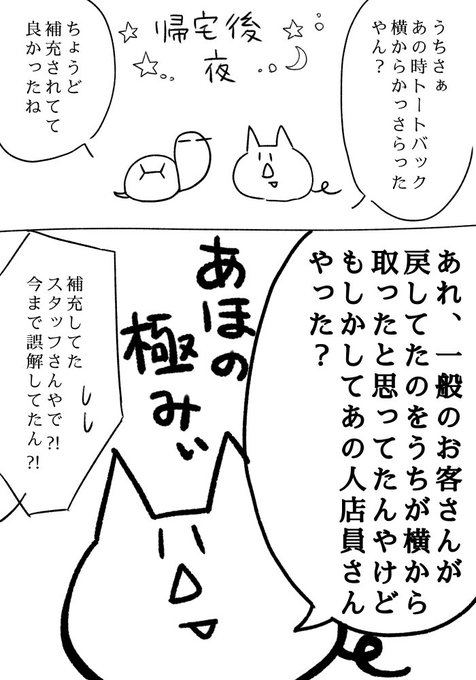 帰宅後
夜
うちさぁ
あの時トートバック
横からかっさらった
やん?
ちょうど
補充されてて
良かったね
あれ、一般のお客さんが
戻してたのをうちが横から
取ったと思ってたんやけど
もしかしてあの人店員さん
やった?
あほの
極みぃ
しし
補充してた
スタッフさんやで?!
今まで誤解してたん?!